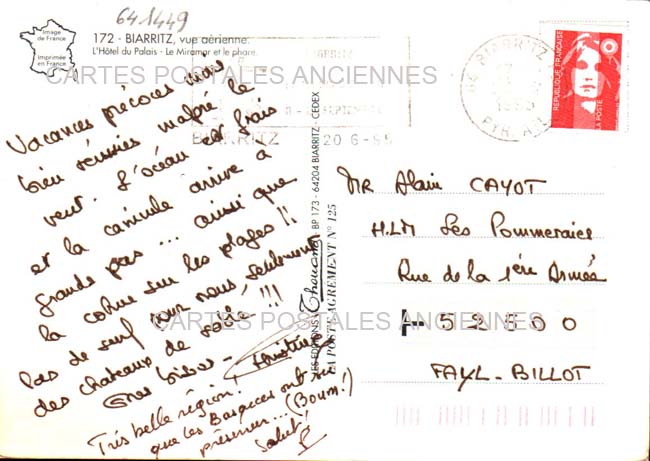 641449
Image
de France
Imprimée
en France
172 - BIARRITZ, vue aérienne.
L'Hôtel du Palais - Le Miramar et le phare.
CARTES POSTALES ANCIENNES
BIARRITZ 20 6-95
64 BIARRITZ
1995
PYR. ATL.
REPUBLIQUE FRANÇAISE
LA POSTE
Vacances précoces mais
bien réussies malgré le
vent. L'océan est frais
et la canicule arrive à
grands pas... ainsi que
la cohue sur les plages !!
Pas de surf pour nous, seulement
des chateaux de sable !!!
Gros bisous -
Très belle région !
que les Basques ont su
préserver... (Boum !)
Salut !
LES EDITIONS Thouand - BP 173 - 64204 BIARRITZ - CEDEX
LA POSTE AGREMENT N° 125
MR Alain CAYOT
HLM Les Pommeraies
Rue de la 1ère Armée
F-52500
FAYL-BILLOT
CARTES POSTALES ANCIENNES